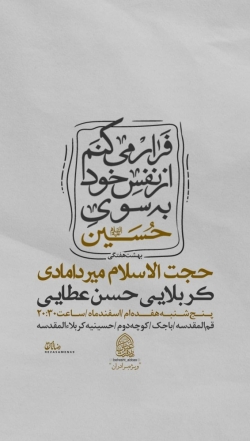 فرار می کنم
از نفس خود
به سوی
حسین
بهشت هفتگی
حجت الاسلام میردامادی
کربلایی حسن عطایی
پنج شنبه هفده ام / اسفندماه / ساعت ۲۰:۳۰
قم المقدسه / باجک / کوچه دوم / حسینیه کربلاء المقدسه